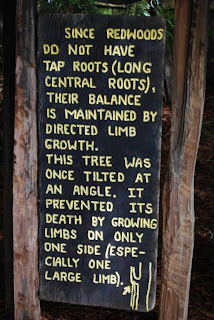 SINCE REDWOODS
DO NOT HAVE
TAP ROOTS (LONG
CENTRAL ROOTS),
THEIR BALANCE
IS MAINTAINED BY
DIRECTED LIMB
GROWTH.
THIS TREE WAS
ONCE TILTED AT
AN ANGLE. IT
PREVENTED ITS
DEATH BY GROWING
LIMBS ON ONLY
ONE SIDE (ESPE-
CIALLY ONE
LARGE LIMB).